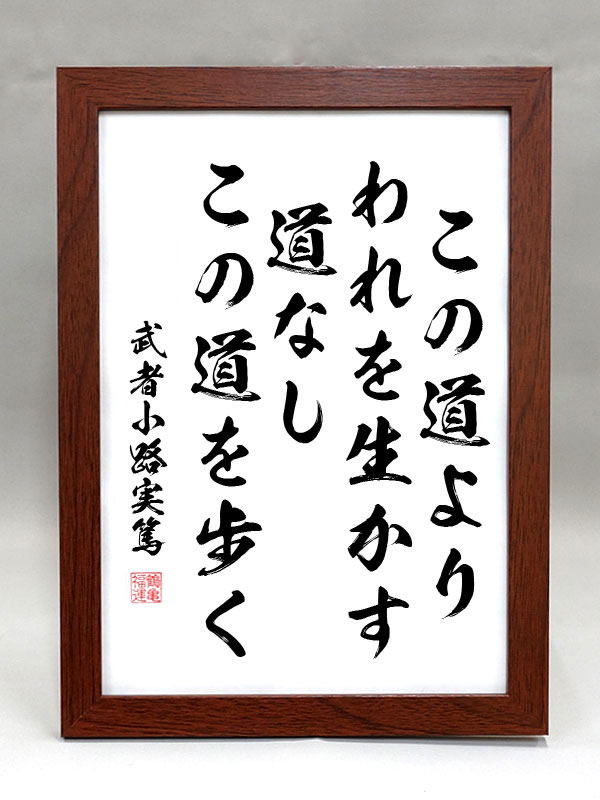 この道より
われを生かす
道なし
この道を歩く
武者小路実篤
鶴亀
福運